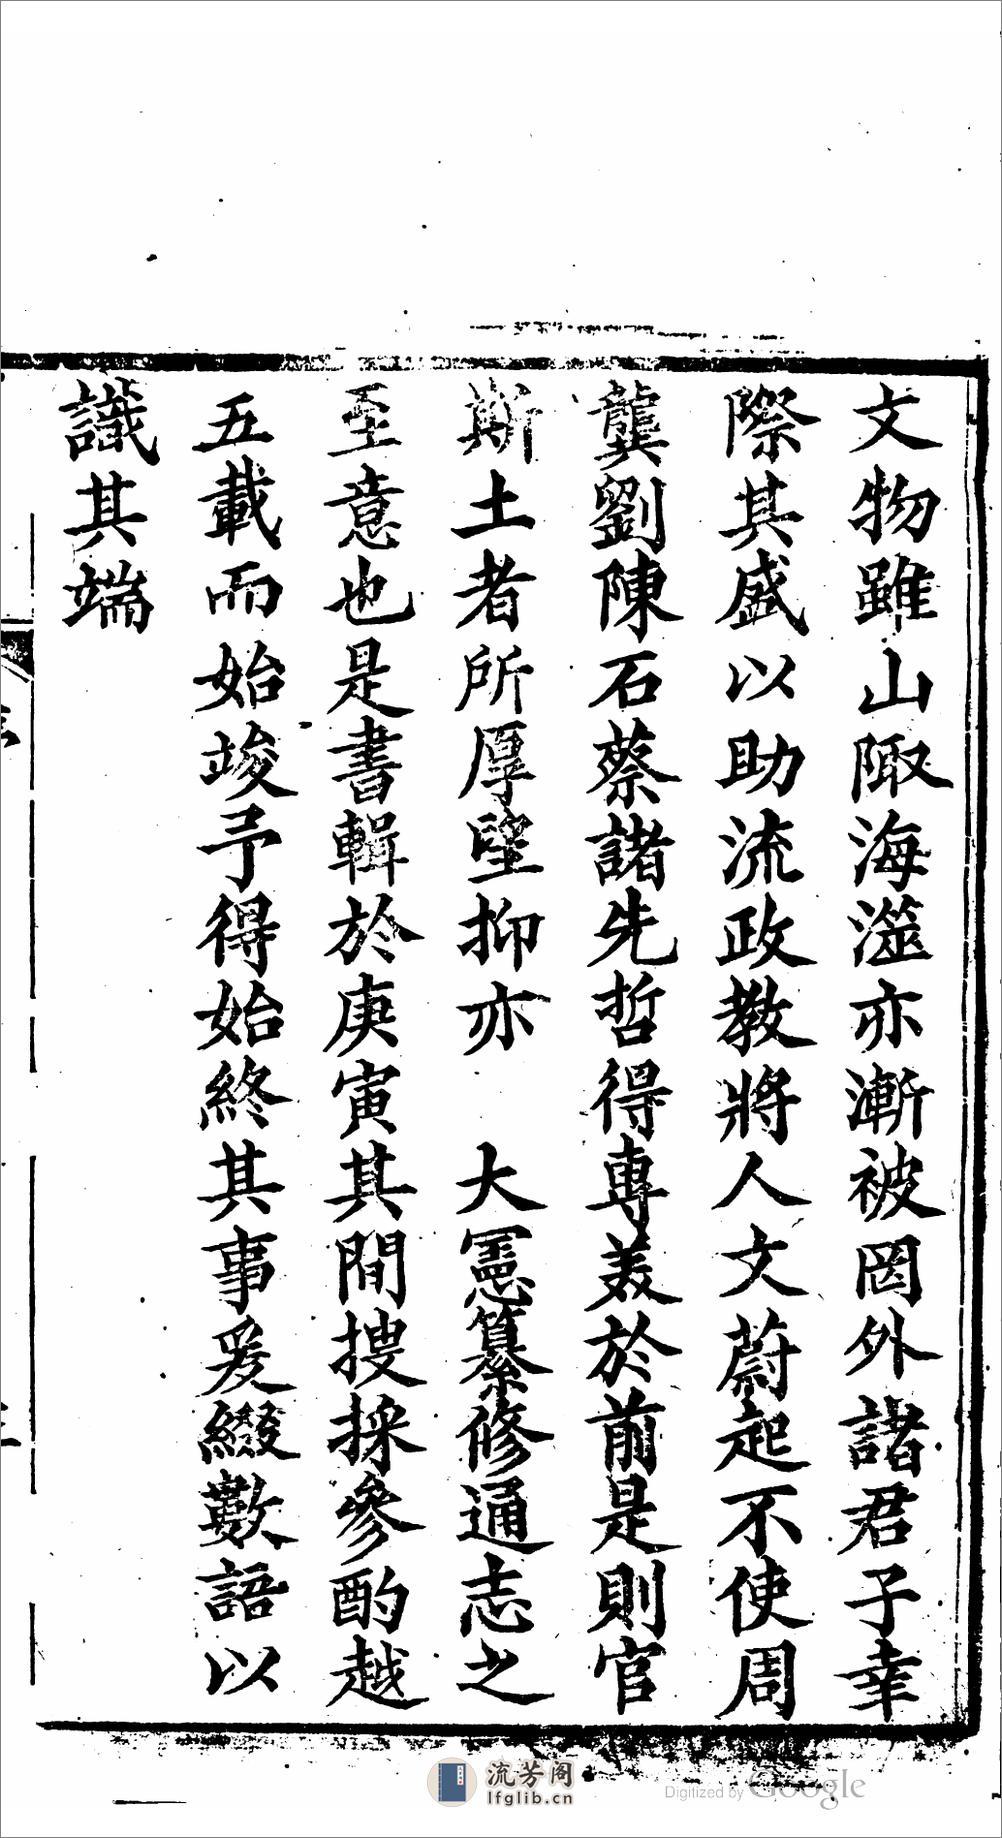 文物雖山陬海澨亦漸被罔外諸君子幸
際其盛以助流政教將人文蔚起不使周
龔劉陳石蔡諸先哲得專美於前是則官
斯土者所厚望抑亦　大憲纂修通志之
至意也是書輯於庚寅其間搜採參酌越
五載而始竣予得始終其事爰綴數語以
識其端
流芳阁
lfglib.cn
Digitized by Google